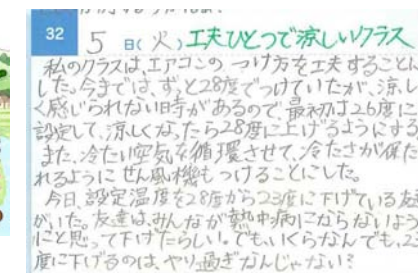 32 5日(火)工夫ひとつで涼しいクラス
私のクラスは、エアコンのつけ方を工夫することに
した。今までは、ずっと28度でつけていたが、涼し
く感じられない時があるので、最初は26度に
設定して、涼しくなったら28度に上げるようにする
また、冷たい空気を循環させて、冷たさが保た
れるようにせん風機もつけることにした。
今日、設定温度を28度から23度に下げている友達
がいた。友達は、みんなが熱中病にならないよう
にと思って下げたらしい。でも、いくらなんでも、23
度に下げるのは、やり過ぎなんじゃない?